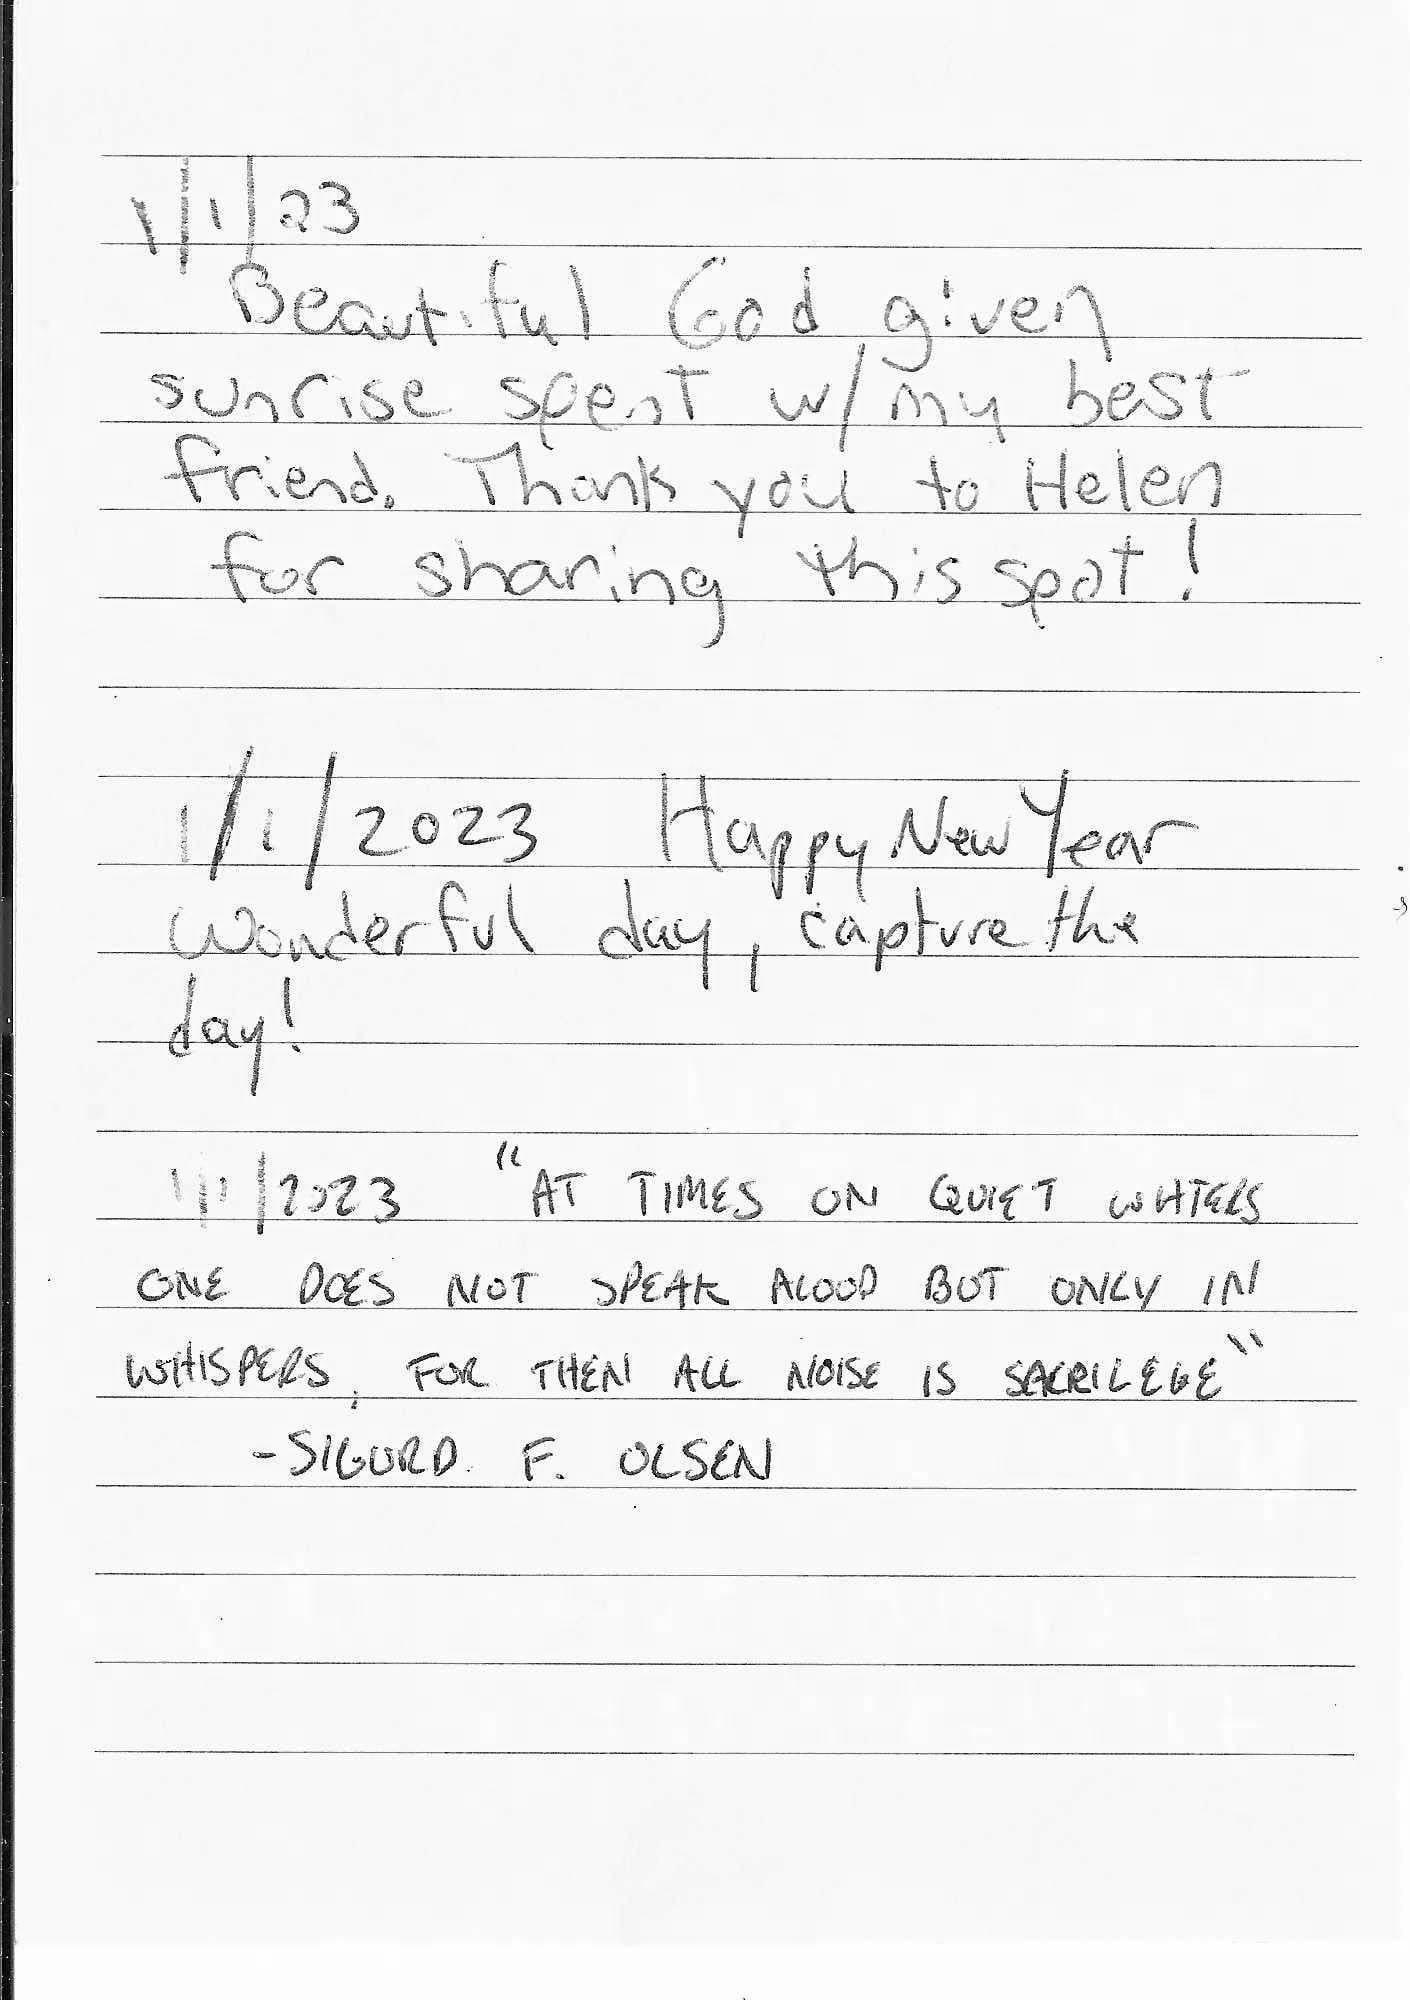 1/1/23
Beautiful God given
sunrise spent w/ my best
friend. Thank you to Helen
for sharing this spot!
1/1/2023 Happy New Year
Wonderful day, capture the
day!
1/1/2023 "AT TIMES ON QUIET WATERS
ONE DOES NOT SPEAK ALOUD BUT ONLY IN
WHISPERS, FOR THEN ALL NOISE IS SACRILEGE"
-SIGURD F. OLSEN